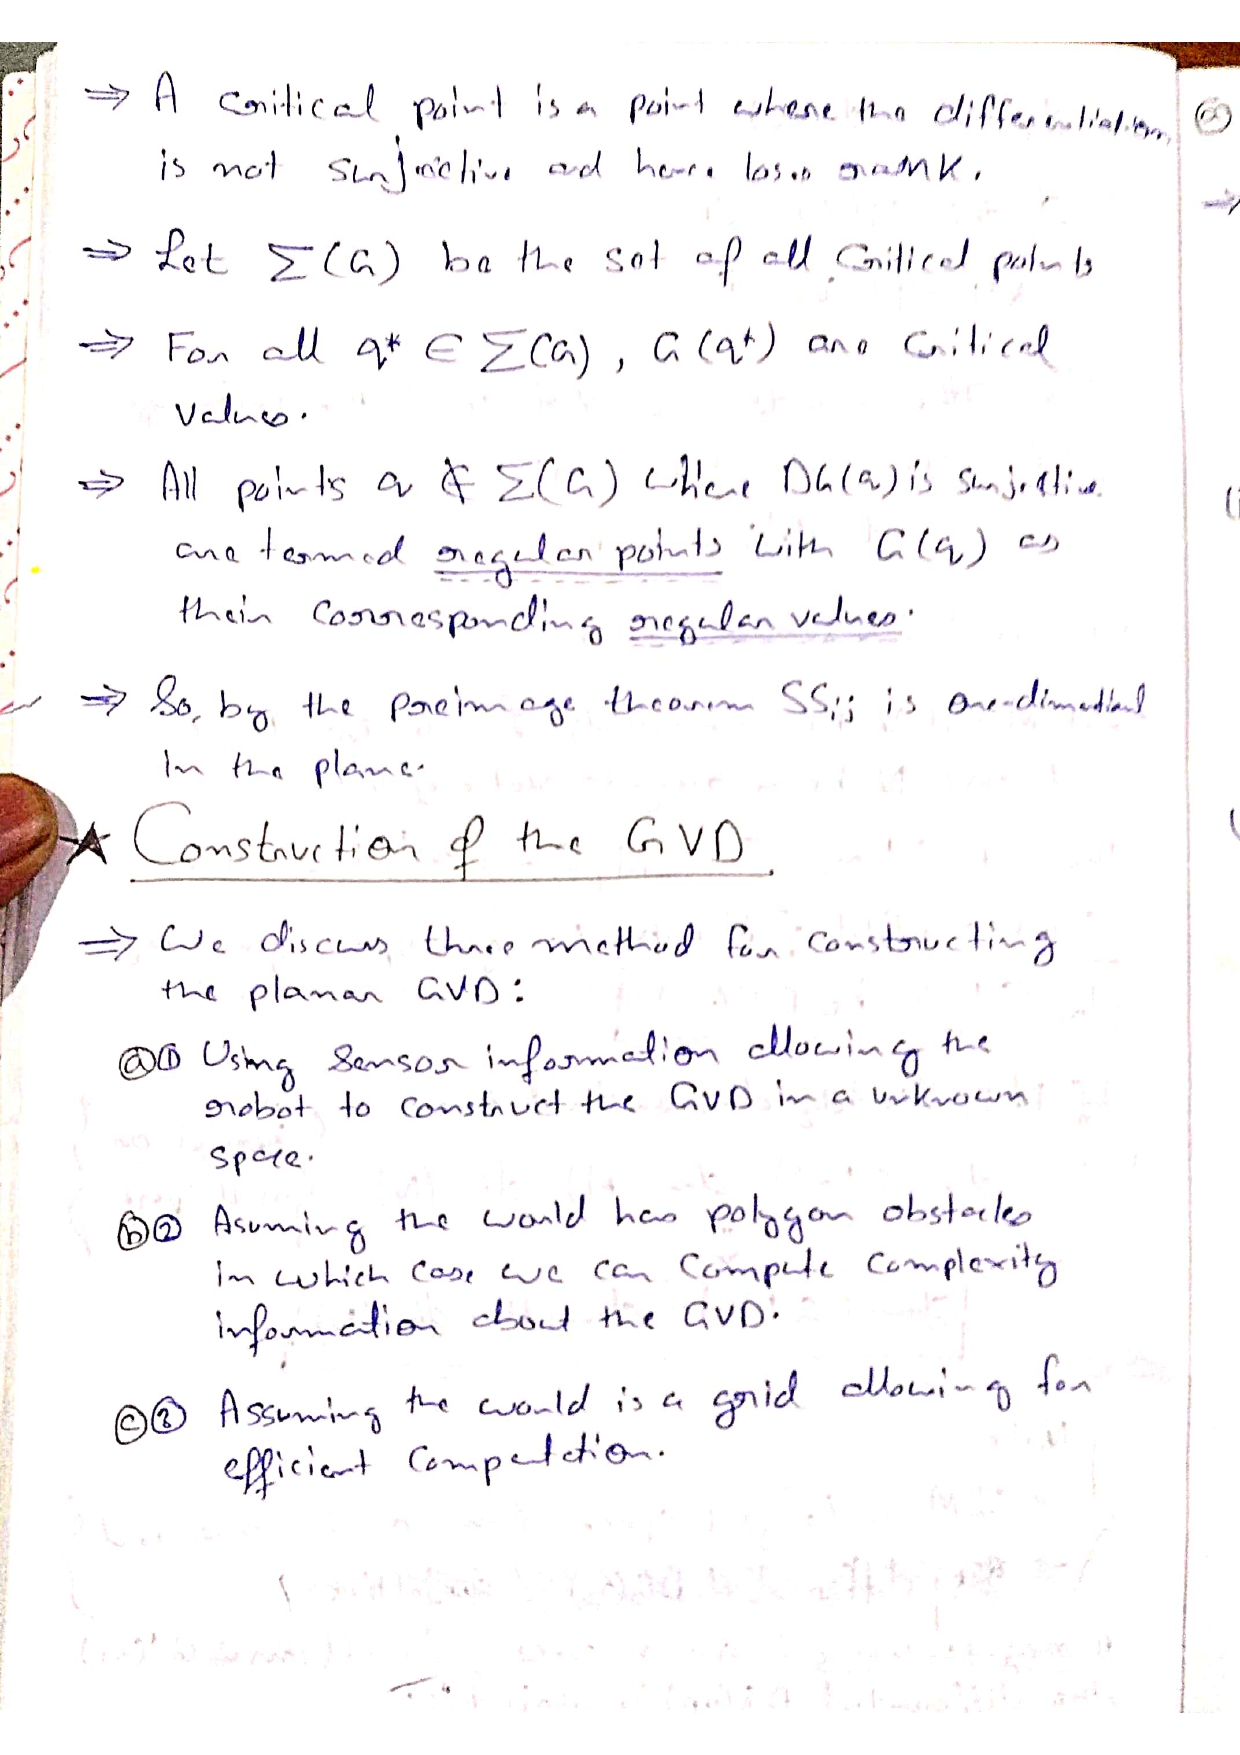 ⇒ A critical point is a point where the differentiation
is not surjective and hence loses rank.
⇒ Let Σ(G) be the set of all critical points
⇒ For all q* ∈ Σ(G), G(q*) are critical
values.
⇒ All points q ∉ Σ(G) where DG(q) is surjective
are termed regular points with G(q) as
their corresponding regular values.
⇒ So, by the preimage theorem SSij is one-dimentional
in the plane.
★ Construction of the GVD
⇒ We discuss three method for constructing
the planar GVD:
ⓐ① Using sensor information allowing the
robot to construct the GVD in a unknown
space.
ⓑ② Asuming the world has polygon obstacles
in which case we can compute complexity
information about the GVD.
ⓒ③ Assuming the world is a grid allowing for
efficient computation.